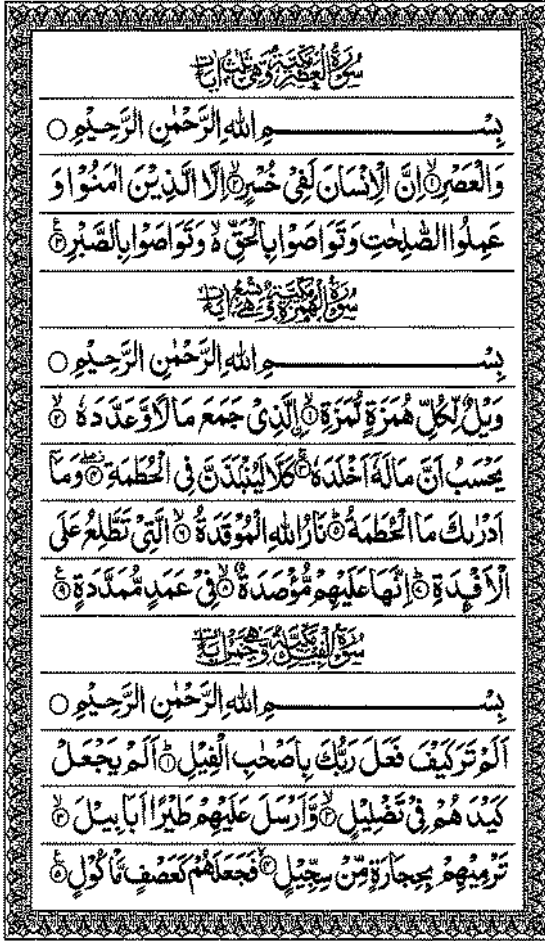 سُوْرَةُ الْعَصْرِ مَكِّيَّةٌ وَّهِيَ ثَلٰثُ اٰيَاتٍ
بِسْمِ اللهِ الرَّحْمٰنِ الرَّحِيْمِ ○
وَالْعَصْرِ ۙ﴿۱﴾ اِنَّ الْاِنْسَانَ لَفِيْ خُسْرٍ ۙ﴿۲﴾ اِلَّا الَّذِيْنَ اٰمَنُوْا وَ
عَمِلُوا الصّٰلِحٰتِ وَتَوَاصَوْا بِالْحَقِّ ۙ وَتَوَاصَوْا بِالصَّبْرِ ﴿۳﴾
سُوْرَةُ الْهُمَزَةِ مَكِّيَّةٌ وَّهِيَ تِسْعُ اٰيَاتٍ
بِسْمِ اللهِ الرَّحْمٰنِ الرَّحِيْمِ ○
وَيْلٌ لِّكُلِّ هُمَزَةٍ لُّمَزَةٍ ۙ﴿۱﴾ اِۨلَّذِيْ جَمَعَ مَالًا وَّعَدَّدَهٗ ۙ﴿۲﴾
يَحْسَبُ اَنَّ مَالَهٗٓ اَخْلَدَهٗ ۚ﴿۳﴾ كَلَّا لَيُنْۢبَذَنَّ فِي الْحُطَمَةِ ﴿۴﴾ وَمَآ
اَدْرٰىكَ مَا الْحُطَمَةُ ؕ﴿۵﴾ نَارُ اللهِ الْمُوْقَدَةُ ۙ﴿۶﴾ الَّتِيْ تَطَّلِعُ عَلَى
الْاَفْـِٕدَةِ ؕ﴿۷﴾ اِنَّهَا عَلَيْهِمْ مُّؤْصَدَةٌ ۙ﴿۸﴾ فِيْ عَمَدٍ مُّمَدَّدَةٍ ﴿۹﴾
سُوْرَةُ الْفِيْلِ مَكِّيَّةٌ وَّهِيَ خَمْسُ اٰيَاتٍ
بِسْمِ اللهِ الرَّحْمٰنِ الرَّحِيْمِ ○
اَلَمْ تَرَ كَيْفَ فَعَلَ رَبُّكَ بِاَصْحٰبِ الْفِيْلِ ؕ﴿۱﴾ اَلَمْ يَجْعَلْ
كَيْدَهُمْ فِيْ تَضْلِيْلٍ ۙ﴿۲﴾ وَّاَرْسَلَ عَلَيْهِمْ طَيْرًا اَبَابِيْلَ ۙ﴿۳﴾
تَرْمِيْهِمْ بِحِجَارَةٍ مِّنْ سِجِّيْلٍ ۙ﴿۴﴾ فَجَعَلَهُمْ كَعَصْفٍ مَّاْكُوْلٍ ﴿۵﴾